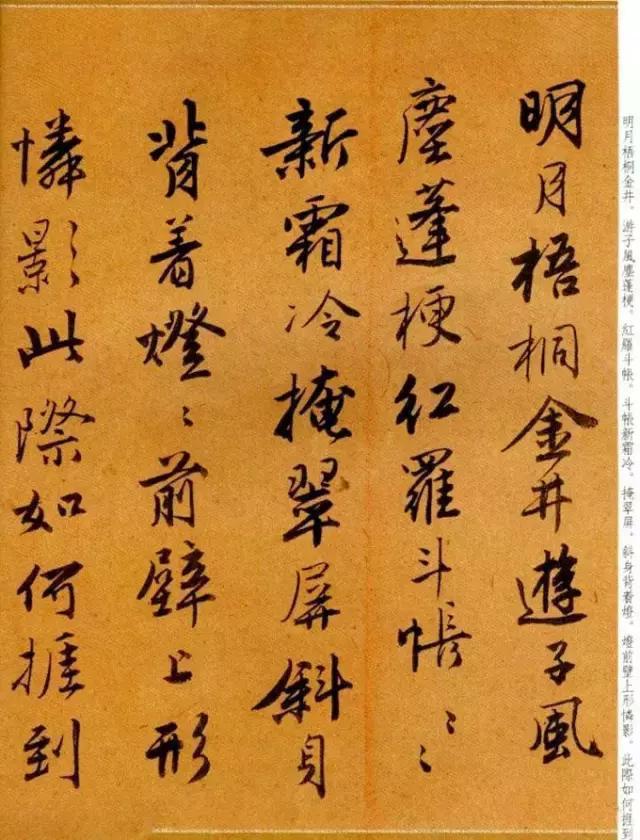 明月梧桐金井遊子風
塵蓬梗紅羅斗帳〻〻
新霜冷掩翠屏斜身
背着燈〻前壁上形
憐影〻此際如何捱到
明月梧桐金井。游子風塵蓬梗。紅羅斗帳。斗帳新霜冷。掩翠屏。斜身背着燈。燈前壁上形憐影。此際如何捱到